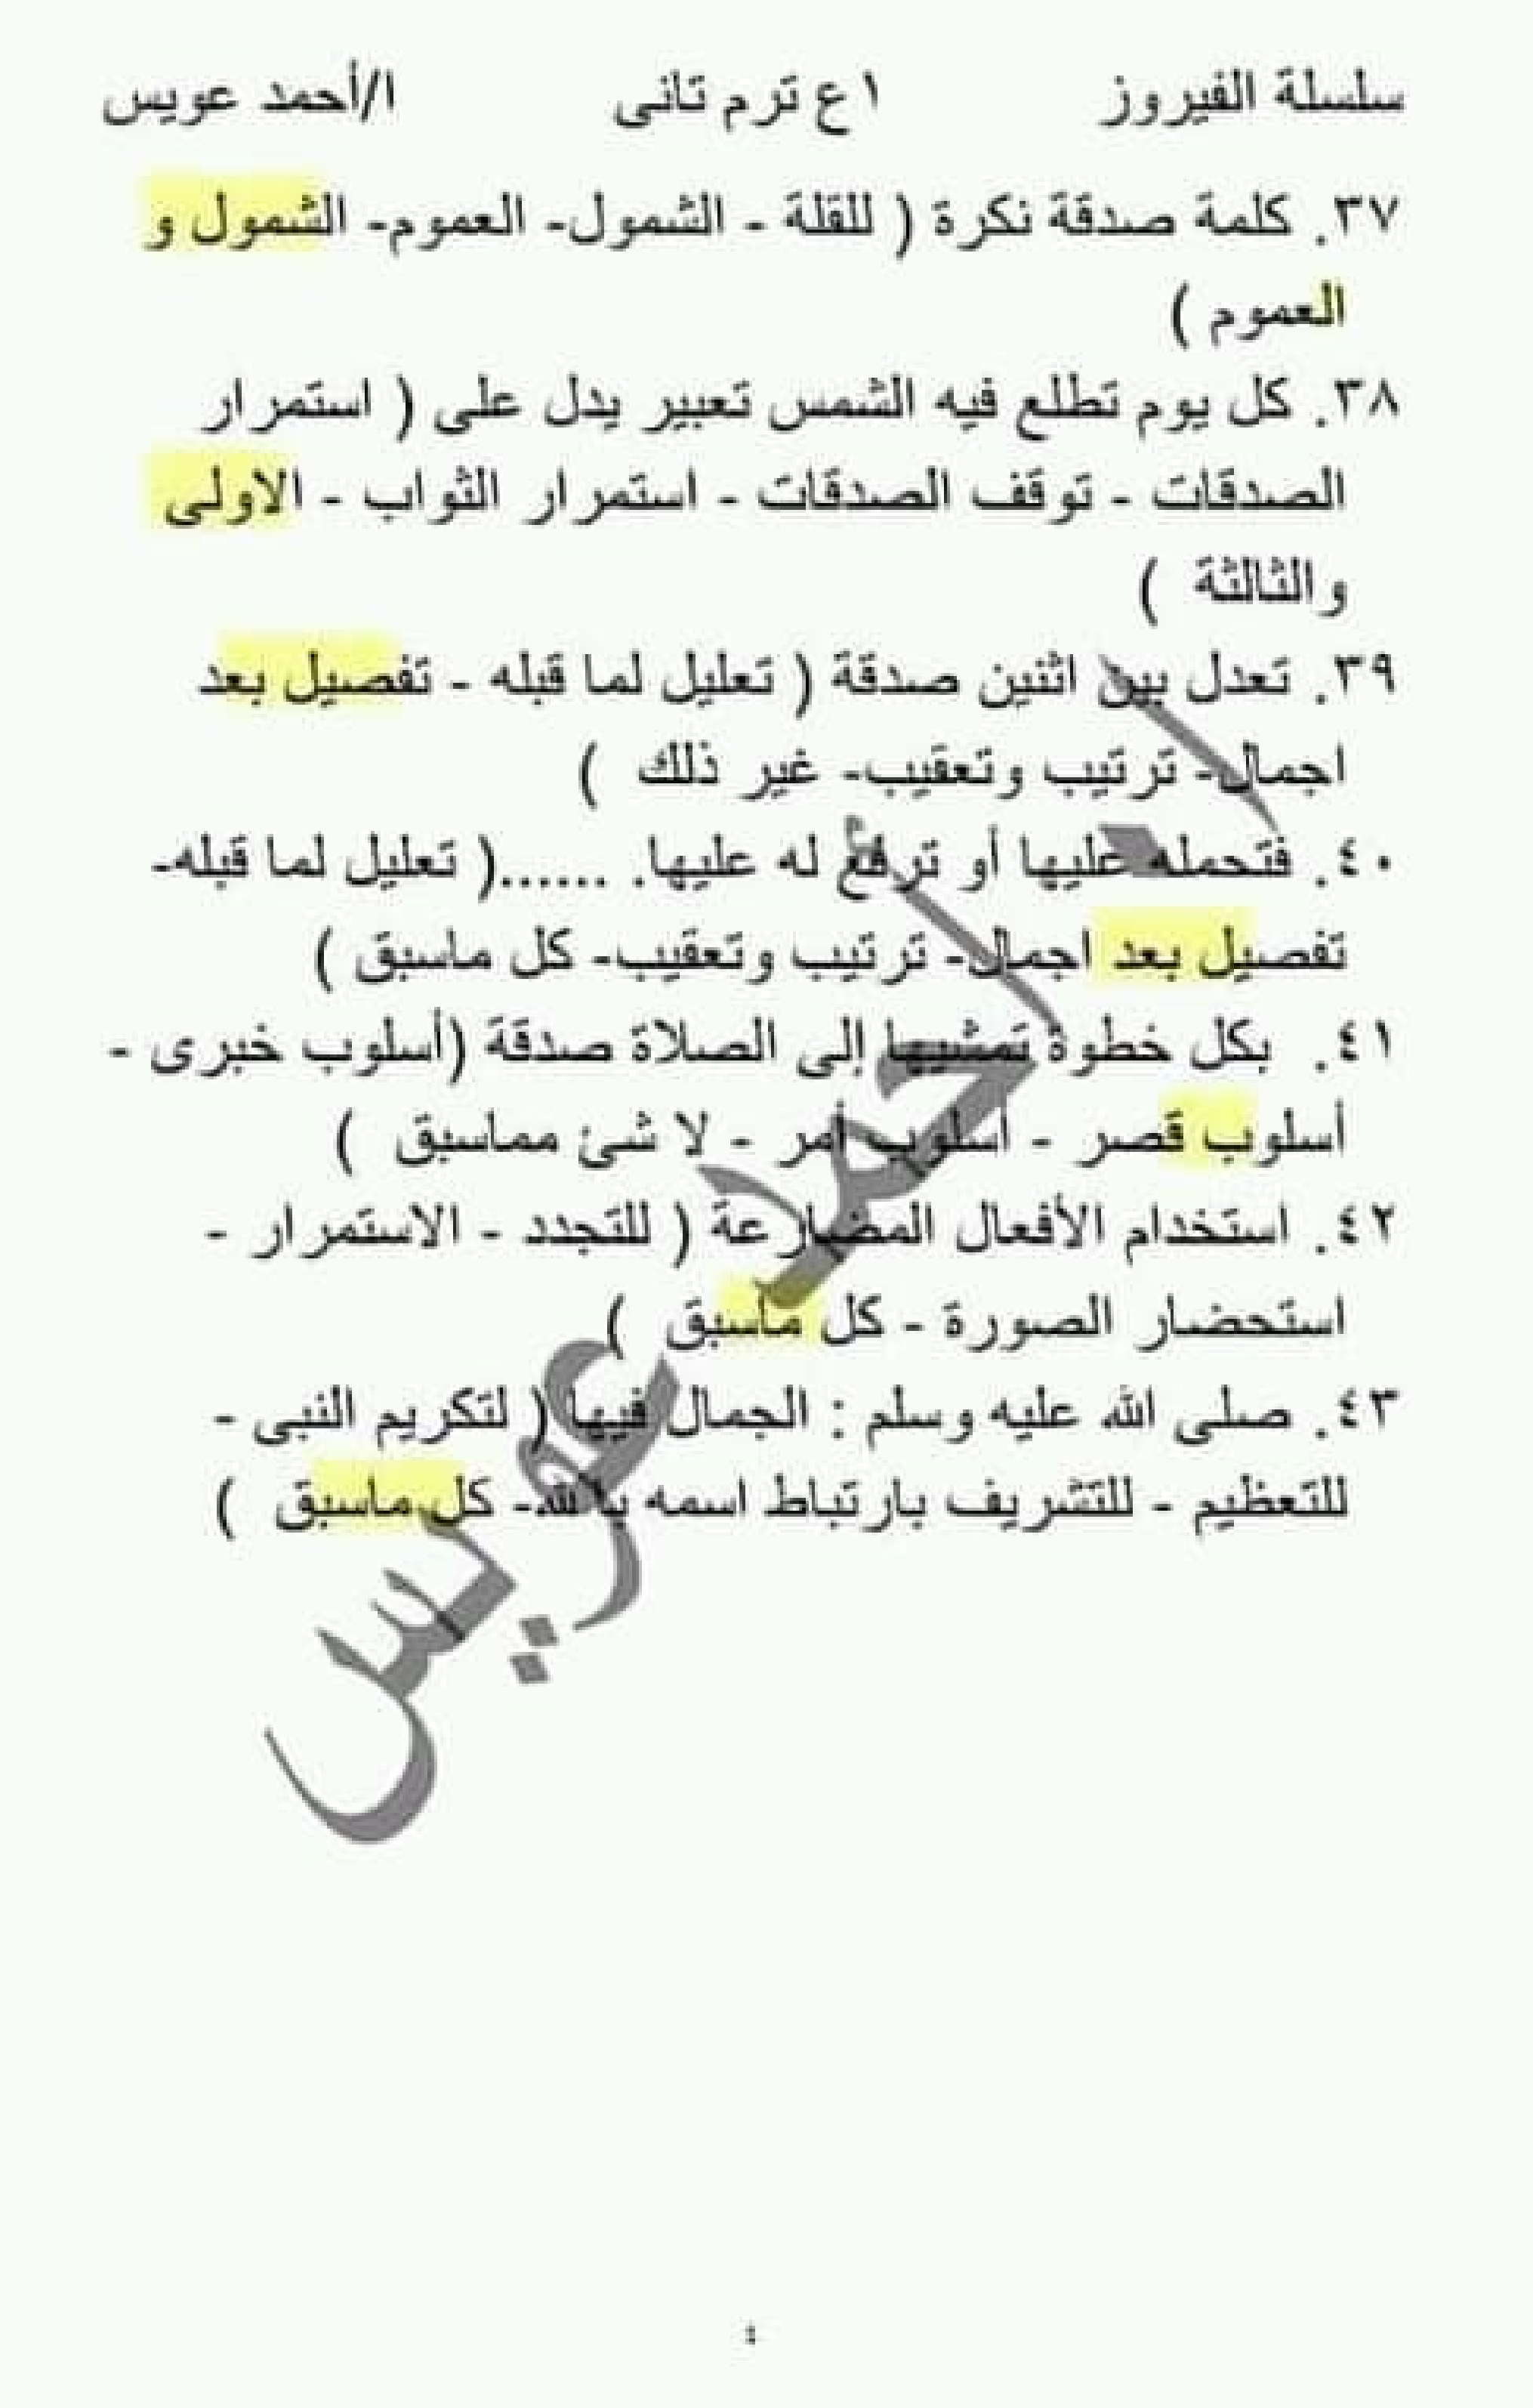 سلسلة الفيروز ١ع ترم تانى ا/أحمد عويس
٣٧. كلمة صدقة نكرة ( للقلة - الشمول- العموم- الشمول و
العموم )
٣٨. كل يوم تطلع فيه الشمس تعبير يدل على ( استمرار
الصدقات - توقف الصدقات - استمرار الثواب - الاولى
والثالثة )
٣٩. تعدل بين اثنين صدقة ( تعليل لما قبله - تفصيل بعد
اجمال- ترتيب وتعقيب- غير ذلك )
٤٠. فتحمله عليها أو ترفع له عليها. ......( تعليل لما قبله-
تفصيل بعد اجمال- ترتيب وتعقيب- كل ماسبق )
٤١. بكل خطوة تمشيها إلى الصلاة صدقة (أسلوب خبرى -
أسلوب قصر - أسلوب أمر - لا شئ مماسبق )
٤٢. استخدام الأفعال المضارعة ( للتجدد - الاستمرار -
استحضار الصورة - كل ماسبق )
٤٣. صلى الله عليه وسلم : الجمال فيها ( لتكريم النبى -
للتعظيم - للتشريف بارتباط اسمه بالله- كل ماسبق )
ا/أحمد عويس
٤